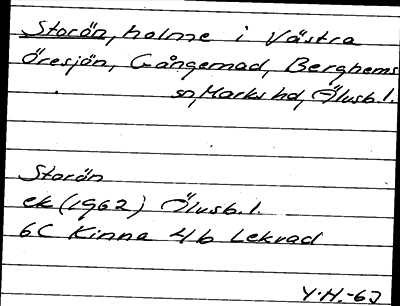 Storön, holme i Västra
Öresjön, Gångemad, Berghems
sn, Marks hd, Älvsb.l.
Storön
ek (1962) Älvsb.l.
6C Kinna 4b Lekvad
Y.H.-63